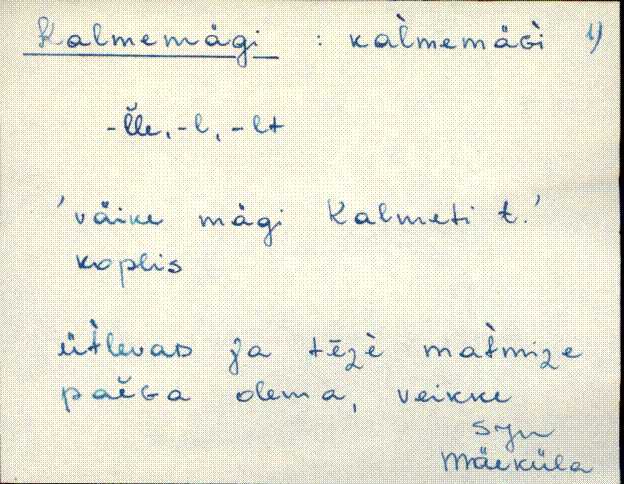 Kalmemägi : kal̀memäɢì 1)
-l̆le, -l, -lt
'väike mägi Kalmeti t.'
koplis
üt̀levaᴅ ja tēzè mat̀mize
paĕ̀ɢa olema, veikke
Syn
Mäeküla